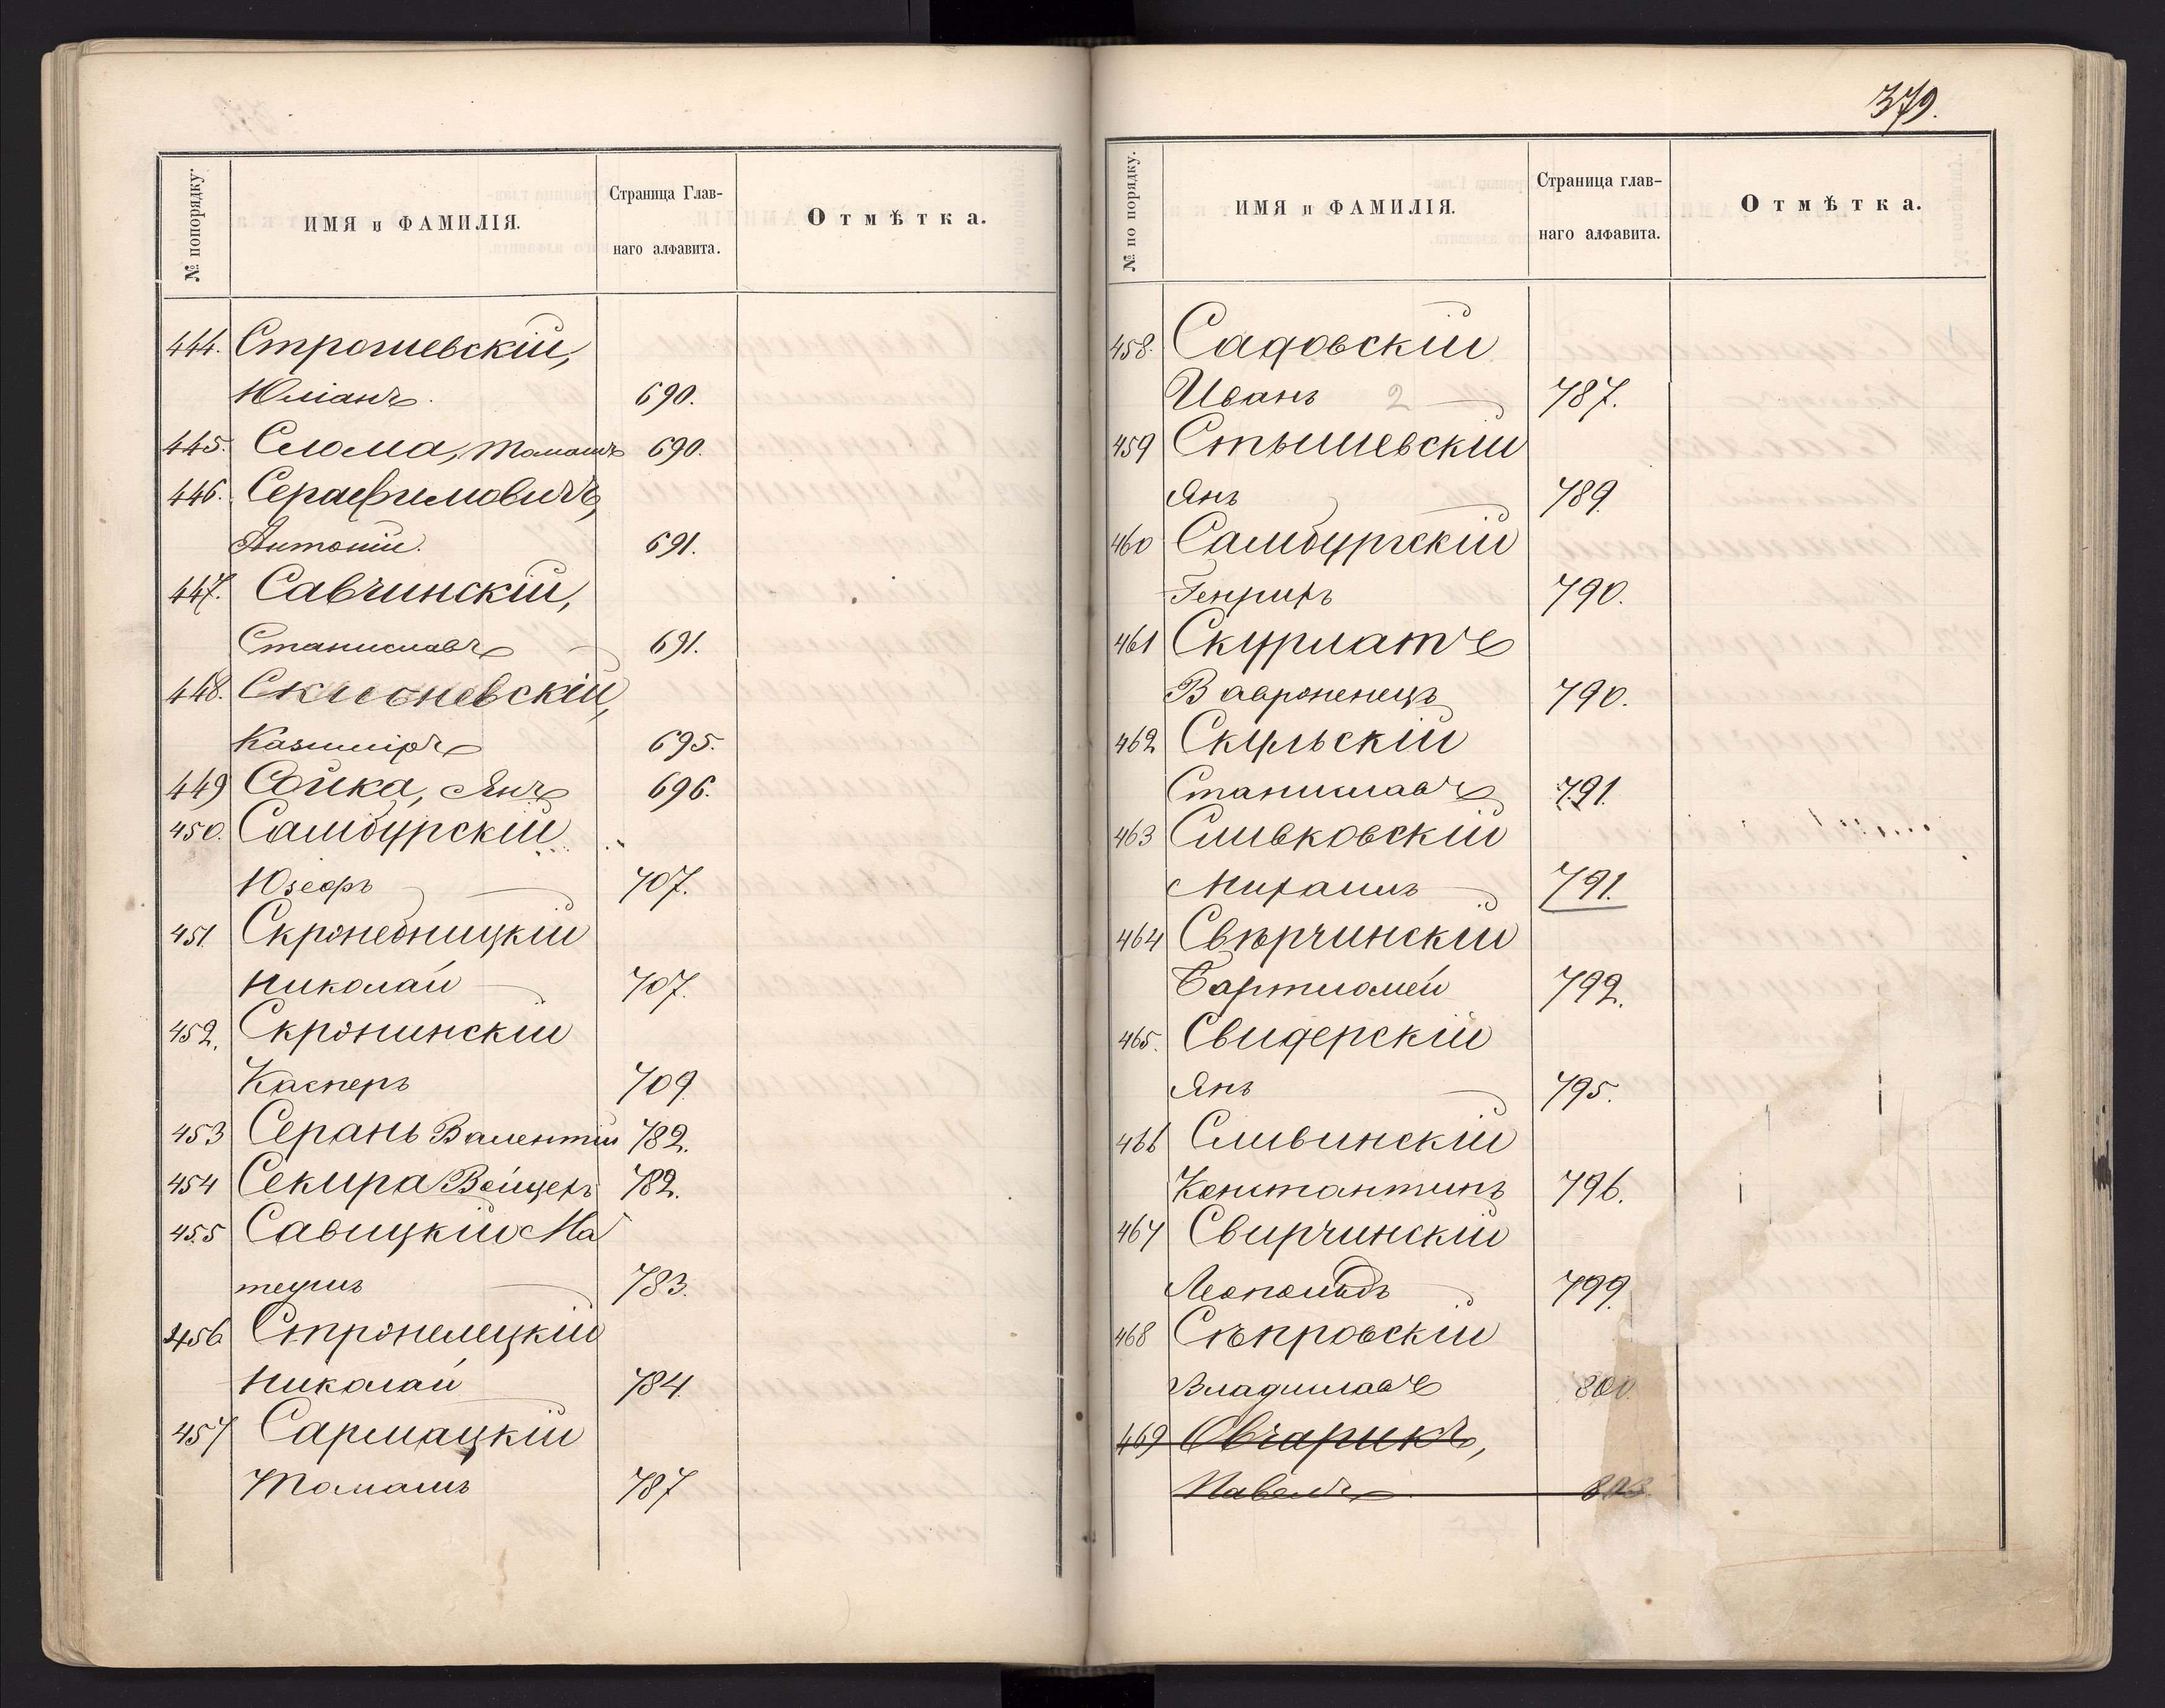 № попорядку.
ИМЯ и ФАМИЛІЯ.
Страница Глав-
наго алфавита.
Отмѣтка.
444. Строшевскій,
Юліанъ. 690.
445. Слома, Томашъ 690.
446. Серафимовичъ,
Антоній. 691.
447. Савчинскій,
Станиславъ 691.
448. Склоневскій,
Казиміръ 695.
449 Сойка, Янъ 696.
450. Самбурскій
Юзефъ 707.
451. Скронебницкій
Николай 707.
452. Скронинскій
Касперъ 709
453 Серань Валентій 782.
454 Секира Войцехъ 782.
455 Савицкій Ма
теушъ 783.
456 Стронелецкій
Николай 784.
457 Сармацкій
Томашъ 787
379.
№ по порядку.
ИМЯ и ФАМИЛІЯ.
Страница глав-
наго алфавита.
Отмѣтка.
458. Садовскій
Иванъ 2 787.
459 Стышевскій
Янъ 789.
460 Самбургскій
Генрихъ 790.
461 Скурлатъ
Вавроненецъ 790.
462 Скульскій
Станиславъ 791.
463 Сливковскій
Михаилъ 791.
464 Свѣрчинскій
Бартломей 792.
465. Свидерскій
Янъ 795.
466 Сливинскій
Константинъ 796.
467 Свирчинскій
Леопольдъ 799.
468 Сѣпровскій
Владиславъ 800.
469 Овчарикъ,
Павелъ 803.